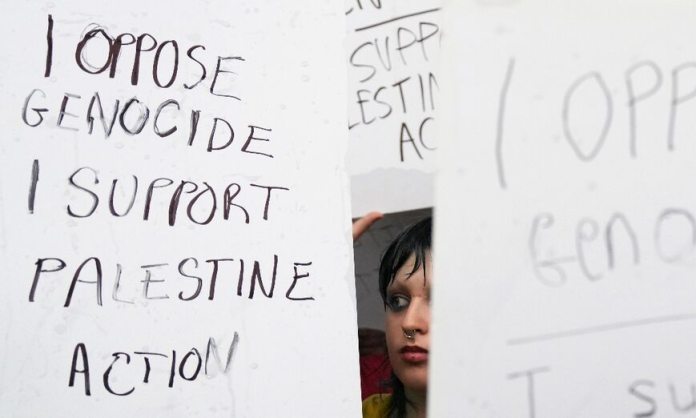 I OPPOSE
GENOCIDE
I SUPPORT
PALESTINE
ACTION
SUPP
ESTIN
AC
I OPP
Geno
I su